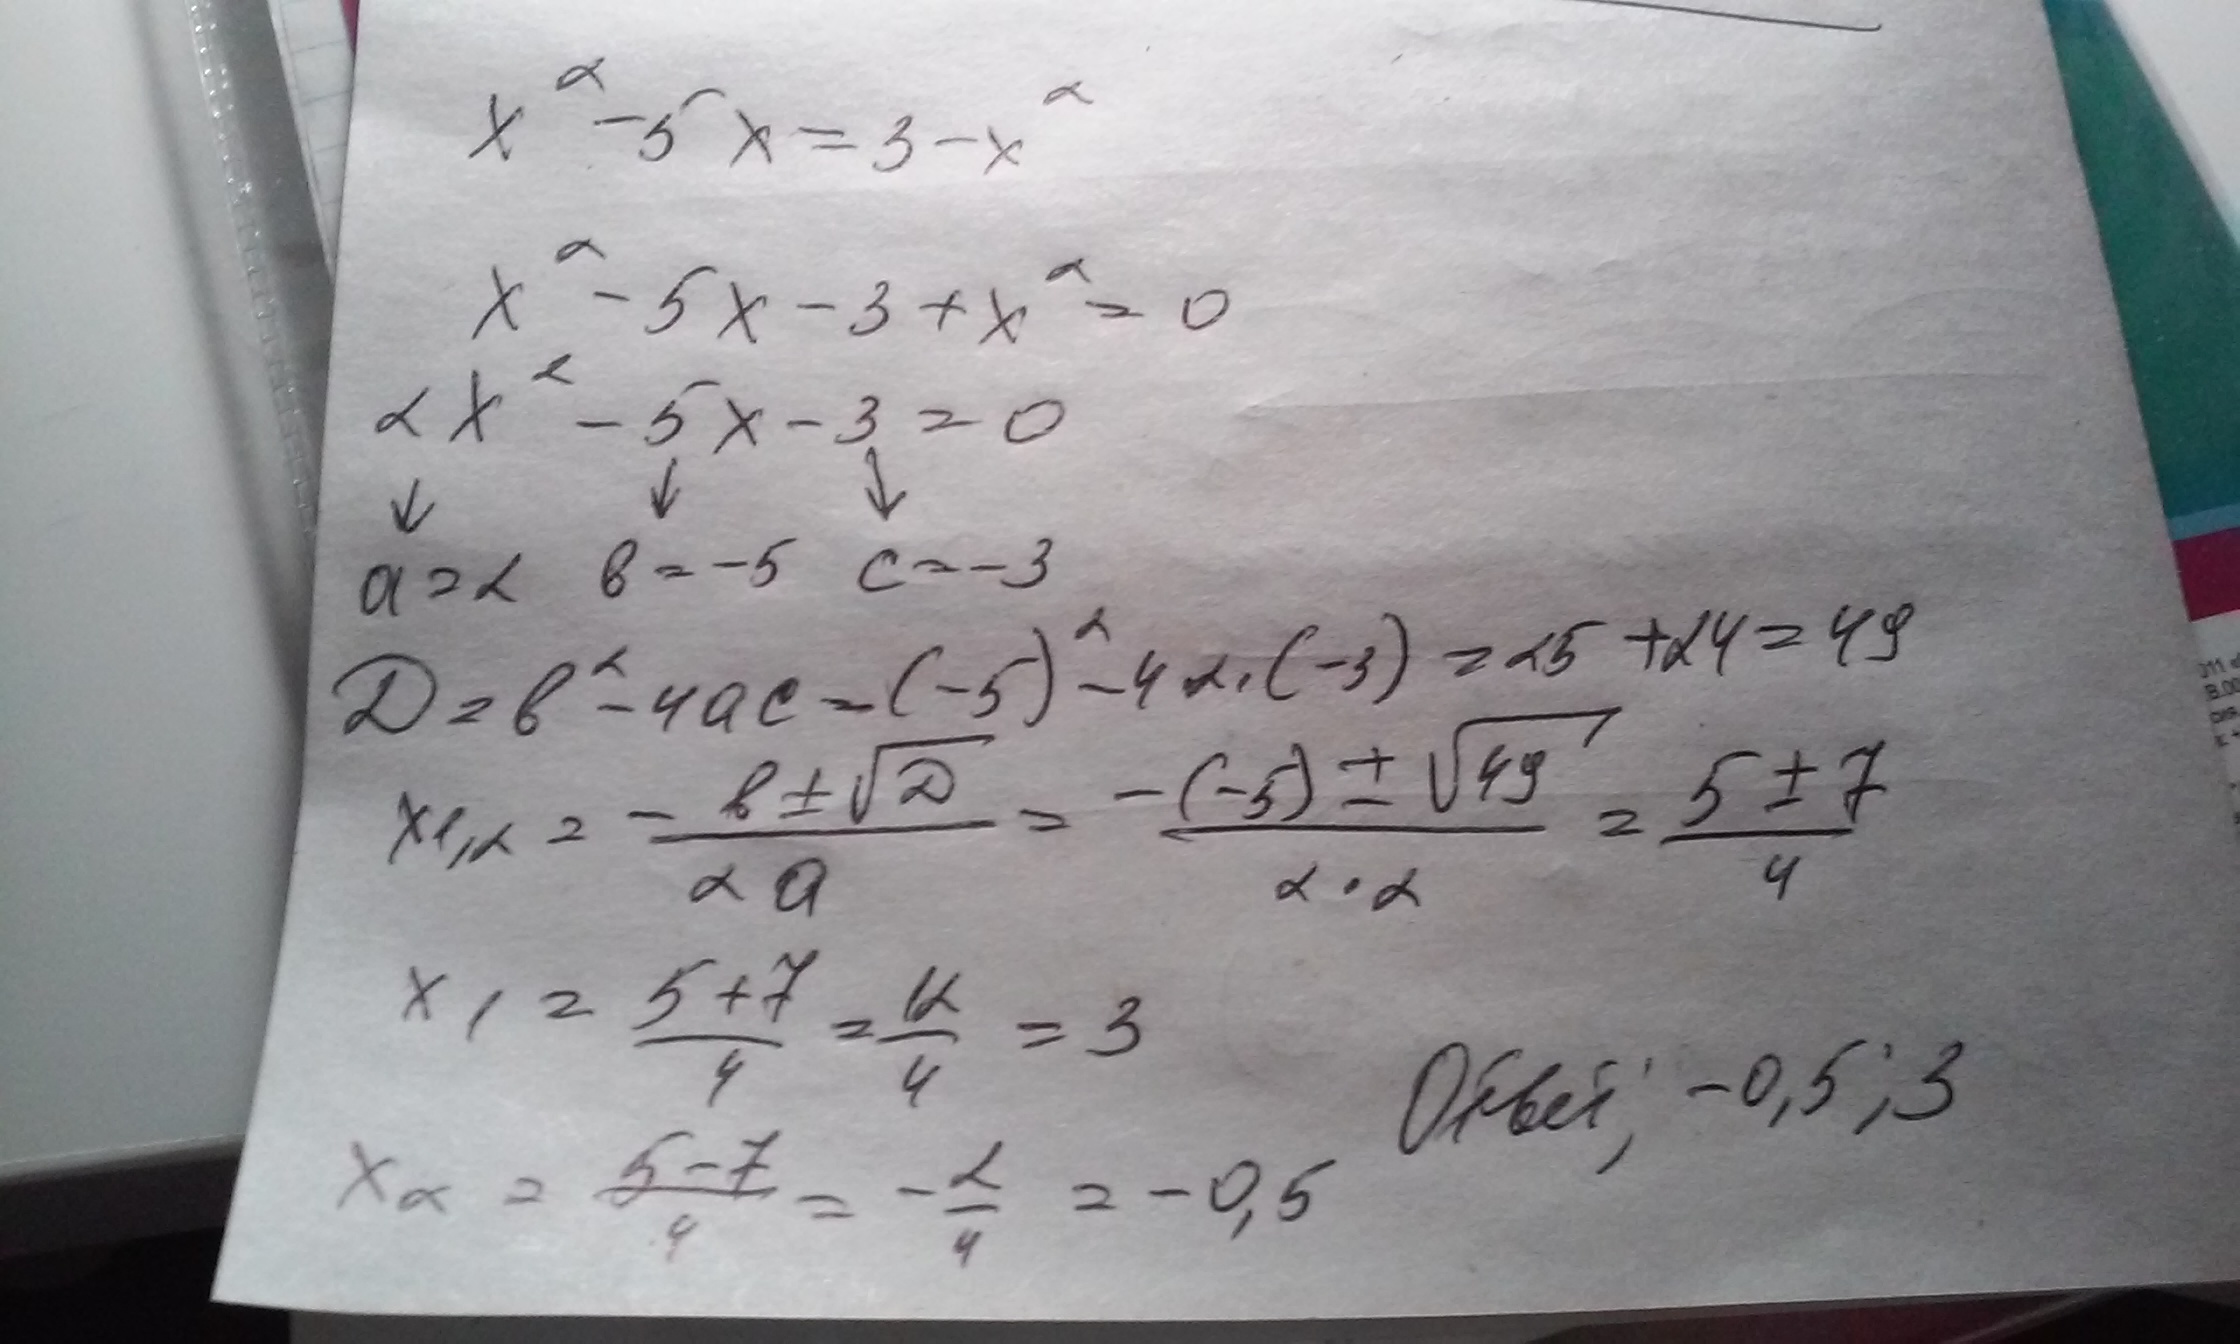 x² - 5x = 3 - x²
x² - 5x - 3 + x² = 0
2x² - 5x - 3 = 0
↓ ↓ ↓
a = 2 b = -5 c = -3
D = b² - 4ac = (-5)² - 4·2·(-3) = 25 + 24 = 49
x1,2 = -b±√D / 2a = -(-5) ± √49 / 2·2 = 5 ± 7 / 4
x1 = 5+7 / 4 = 12 / 4 = 3
x2 = 5-7 / 4 = -2 / 4 = -0,5
Ответ; -0,5; 3